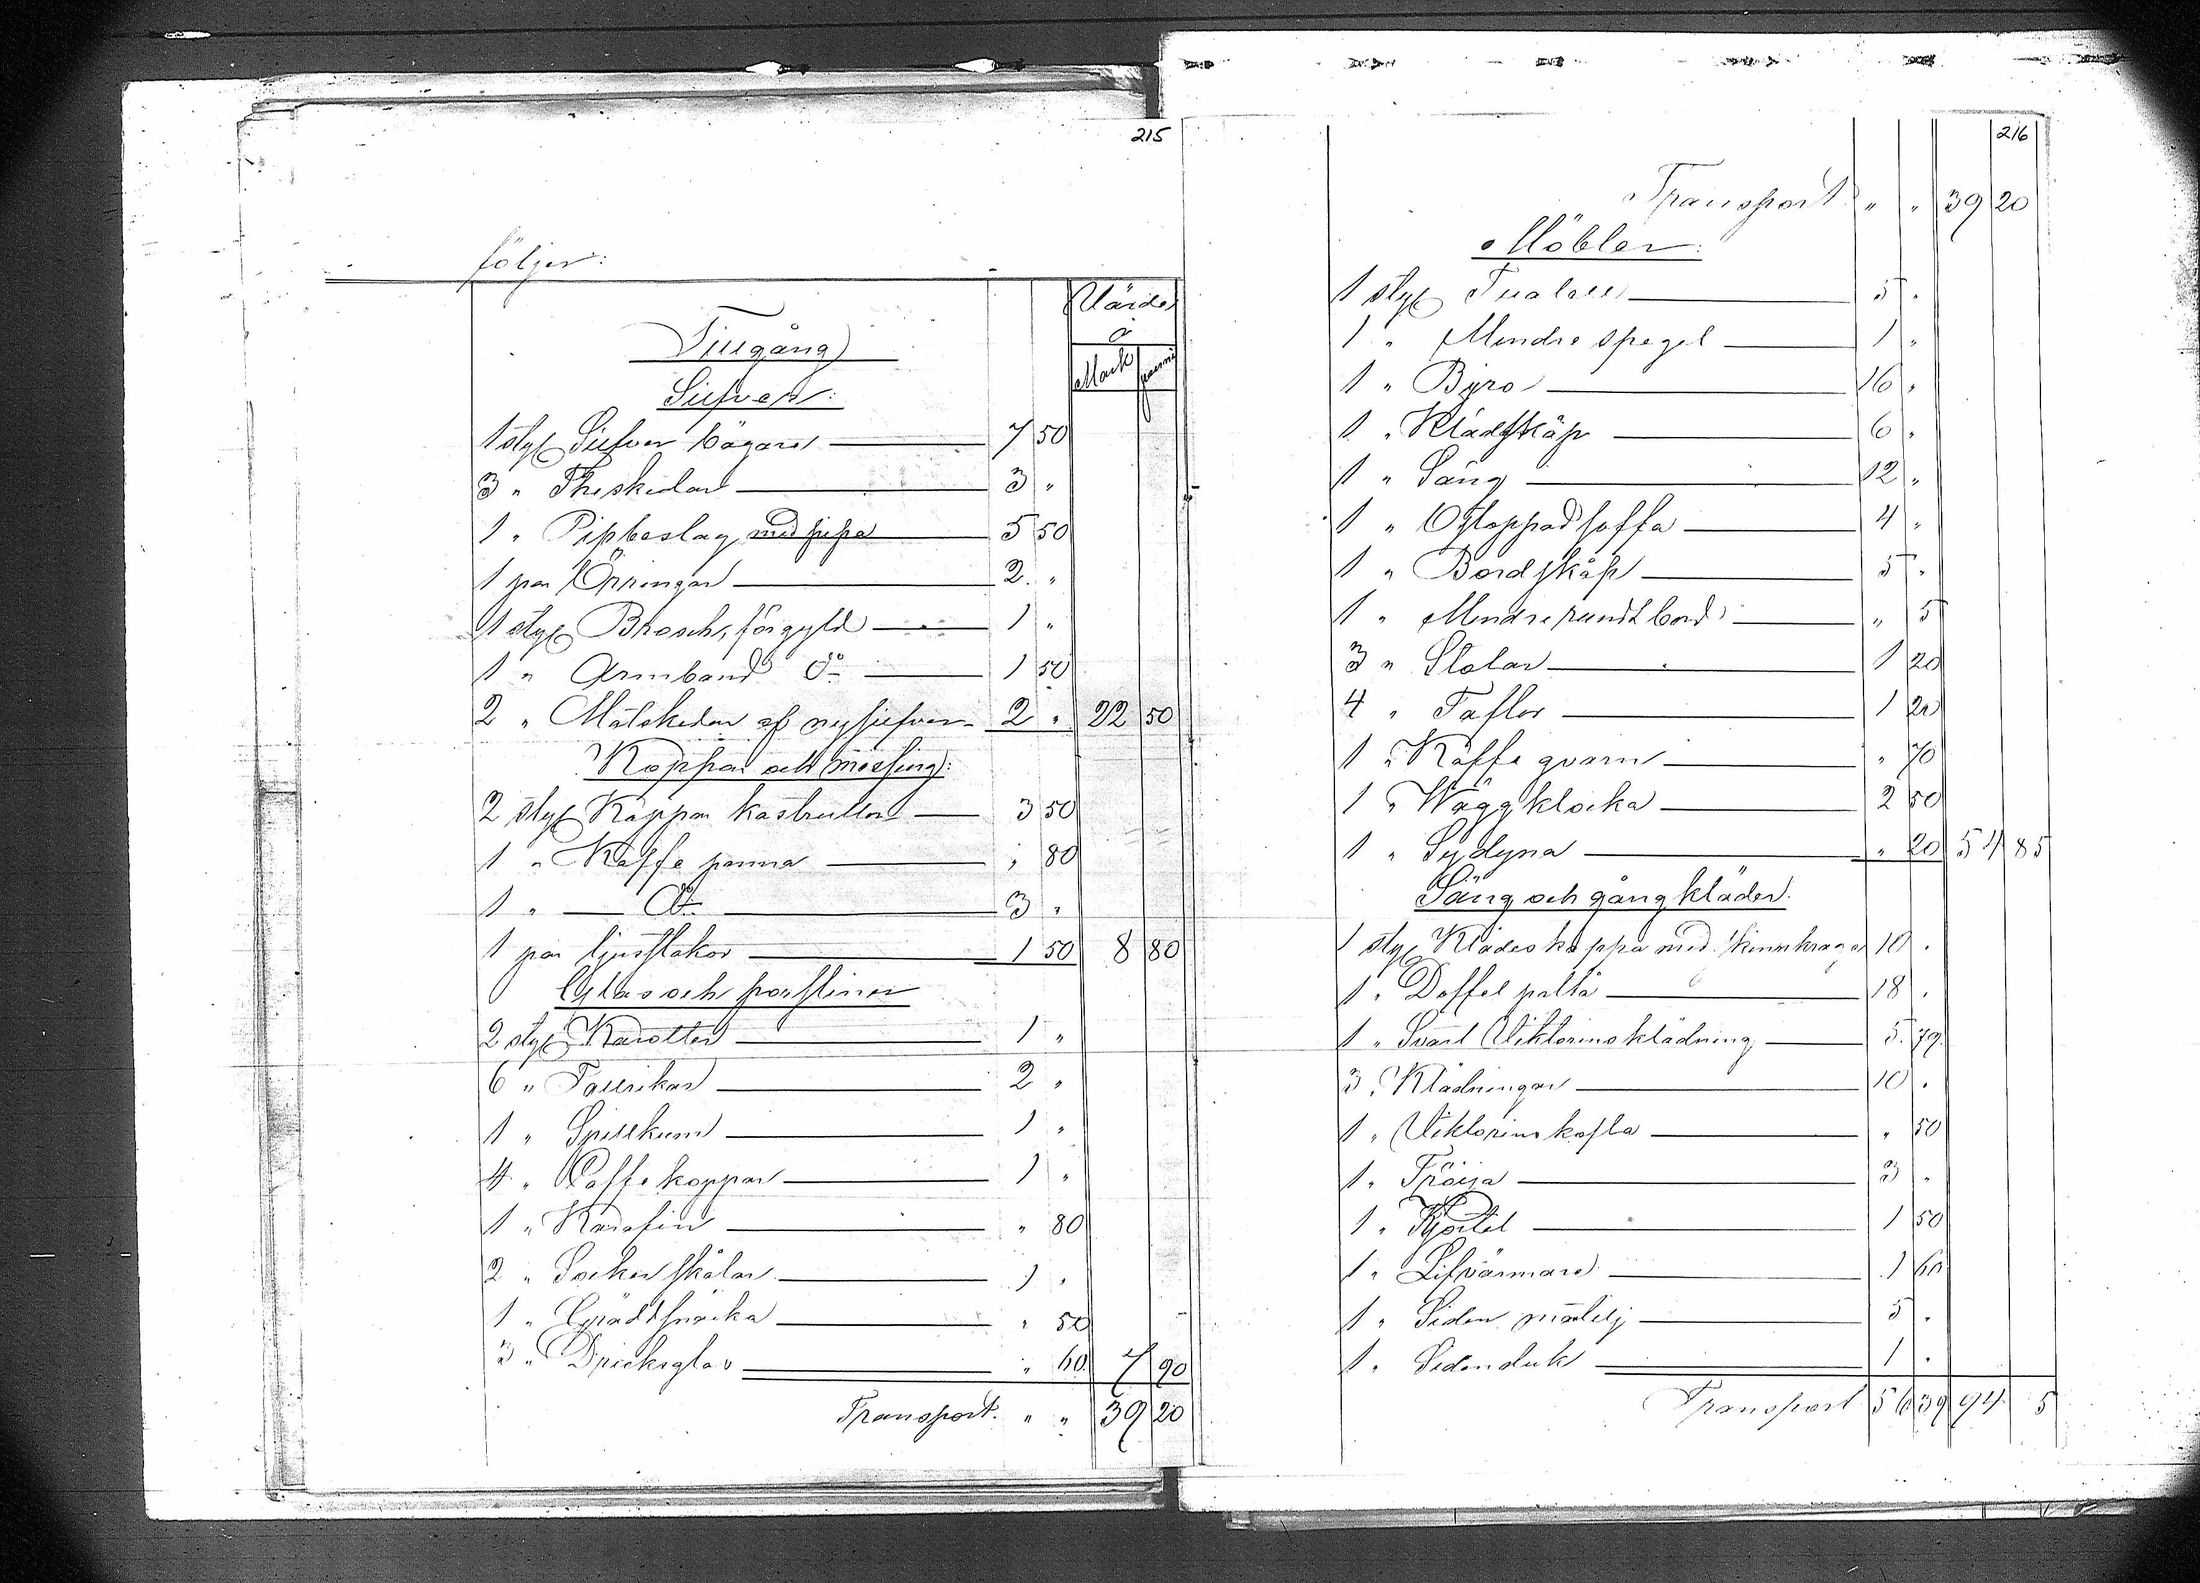 215
följer:
Värde
à
Tillgång
Mark penni
Silfver:
1 styk Silfver bägare 7 50
3 " Theskedar 3 "
1 " Pipbeslag med pipa 5 50
1 par Örringar 2 "
1 styk Brosch, förgyld 1 "
1 " Armband do 1 50
2 " Matskedar af nysilfver 2 " 22 50
Koppar och messing:
2 styk Koppar kastruller 3 50
1 " Kaffe panna " 80
1 " do 3 "
1 par ljusstakar 1 50 8 80
Glas och porsliner
2 styk Karotter 1 "
6 " Tallrikar 2 "
1 " Spillkum 1 "
4 " Caffe koppar 1 "
1 " Karafin " 80
2 " Socker skålar 1 "
1 " Gräddsnäcka " 50
3 " Dricksglas " 60 7 90
Transport " " 39 20
216
Transport " " 39 20
Möbler:
1 styk Tualett 5 "
1 " Mindre spegel 1 "
1 " Byro 16 "
1 " Klädskåp 6 "
1 " Säng 12 "
1 " Ostoppad soffa 4 "
1 " Bordskåp 5 "
1 " Mindre rundt bord " 5
3 " Stolar 1 20
4 " Taflor 1 20
1 " Kaffe qvarn " 70
1 " Väggklocka 2 50
1 " Sydyna " 20 54 85
Säng och gångkläder.
1 styk Klädeskappa med skinnkrage 10 "
1 " Doffel paltå 18 "
1 " Svart Viktorinsklädning 5 79
3 " Klädningar 10 "
1 " Viktorins kofta " 50
1 " Tröija 3 "
1 " Kjortel 1 50
1 " Lifvärmare 1 60
1 " Siden mantilj 5 "
1 " Sidenduk 1 "
Transport 56 39 94 5